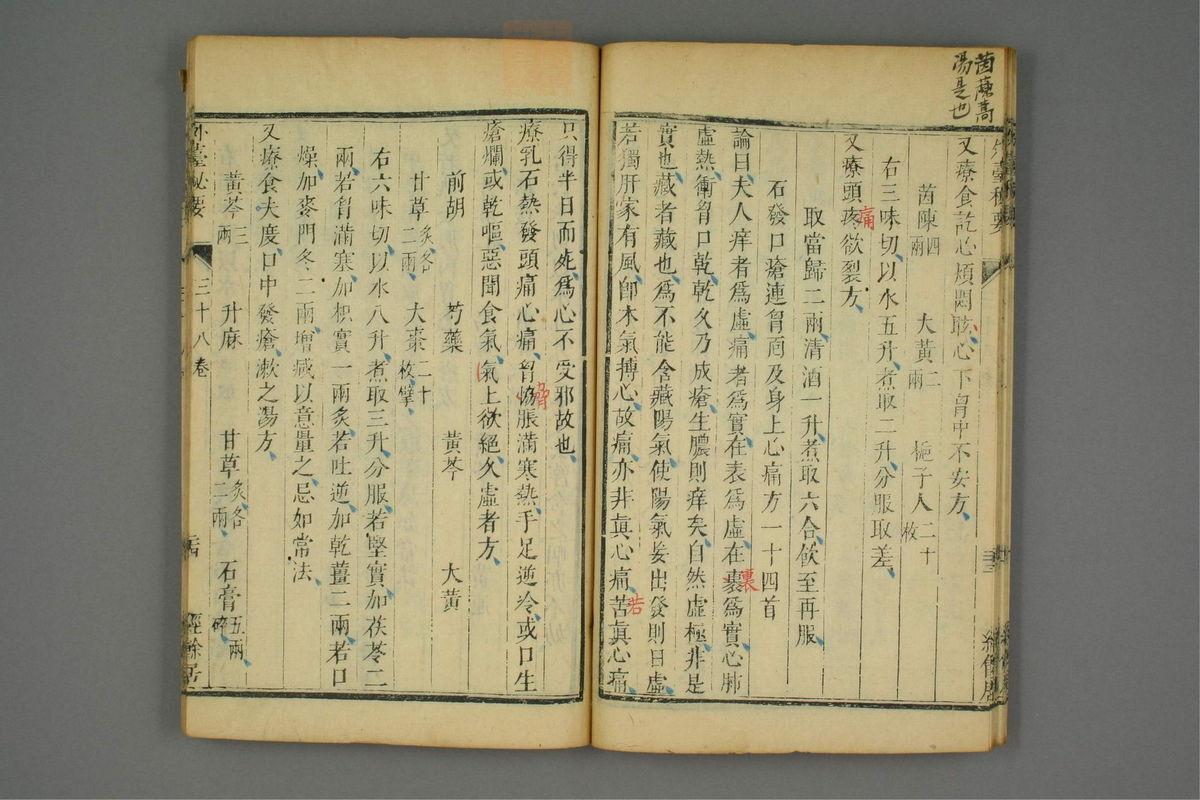 茵蔯蒿
湯是也
又療食訖心煩悶眩心下胷中不安方
茵陳四兩 大黃二兩 梔子人二十枚
右三味切以水五升煮取二升分服取差
又療頭疼欲裂方
痛
取當歸二兩清酒一升煮取六合飲至再服
石發口瘡連胷面及身上心痛方一十四首
論曰夫人痒者爲虛痛者爲實在表爲虛在裏爲實心肺
裏
虛熱衝胷口乾乾久乃成瘡生膿則痒矣自然虛極非是
實也藏者藏也爲不能含藏陽氣使陽氣妄出發則日虛
若獨肝家有風卽木氣搏心故痛亦非眞心痛苦眞心痛
若
只得半日而死爲心不受邪故也
療乳石熱發頭痛心痛胷脇脹滿寒熱手足逆冷或口生
脅
瘡爛或乾嘔惡聞食氣氣上欲絕久虛者方
前胡 芍藥 黃芩 大黃
甘草炙各二兩 大棗二十枚擘
右六味切以水八升煮取三升分服若堅實加茯苓二
兩若胷滿塞加枳實一兩炙若吐逆加乾薑二兩若口
燥加麥門冬二兩增減以意量之忌如常法
又療食夫度口中發瘡漱之湯方
黃芩三兩 升麻 甘草炙各二兩 石膏五兩碎
外臺秘要 三十八卷 經餘居